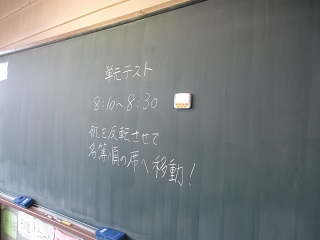 単元テスト
8:10~8:30
机を反転させて
名簿順の席へ移動!